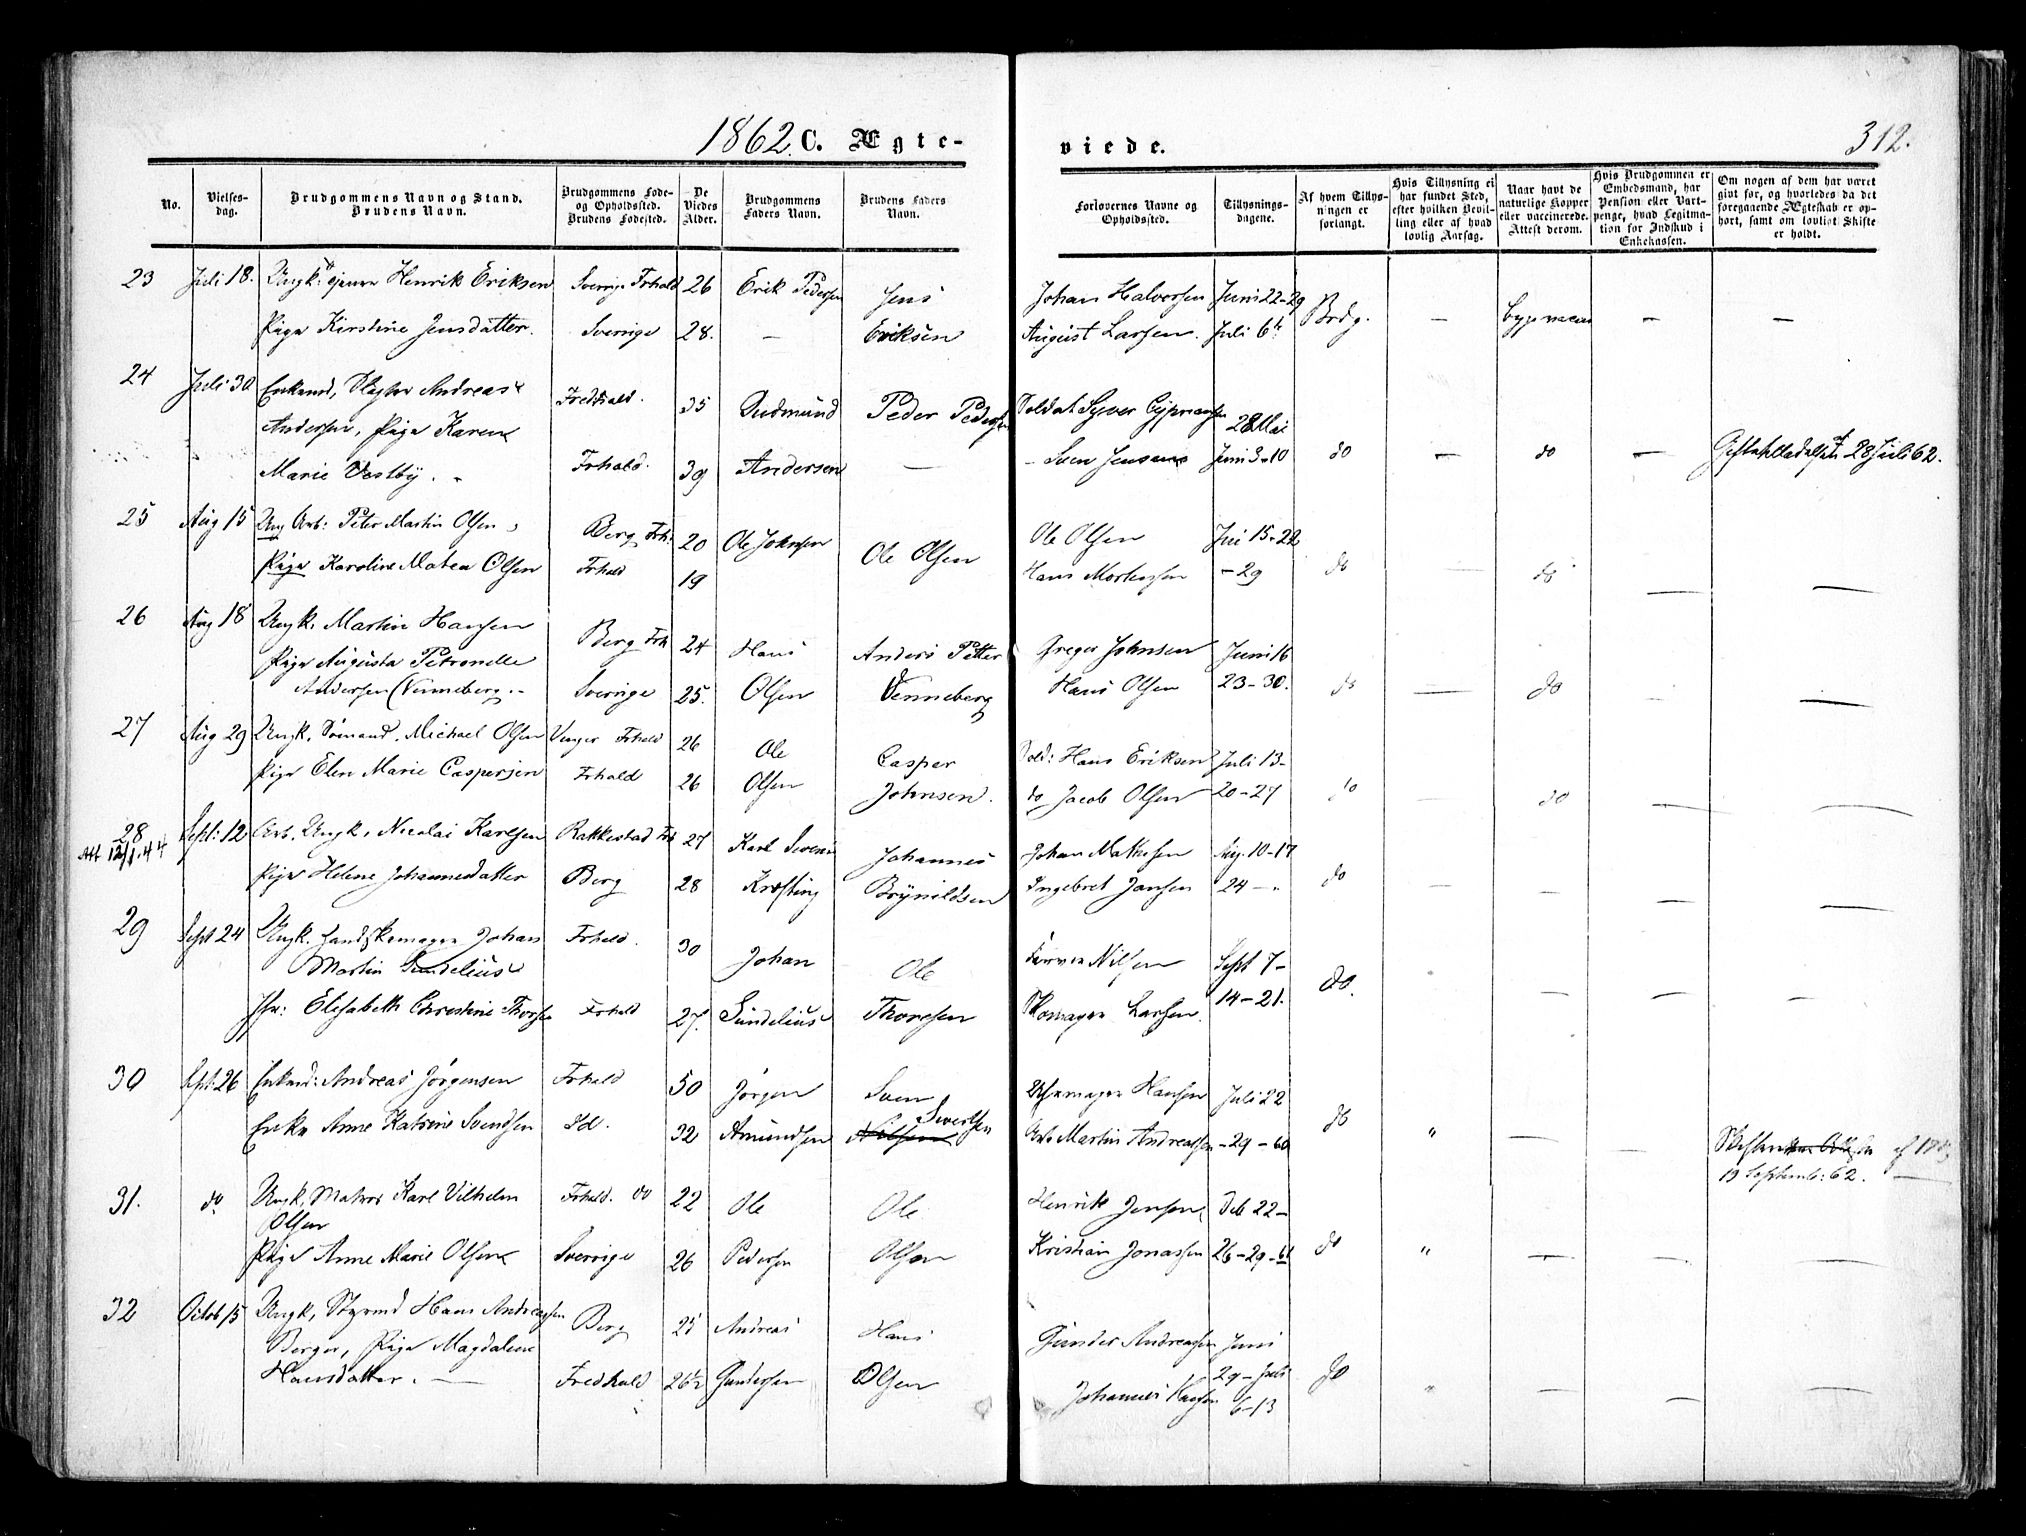 1862. C. Ægte-
viede.
312.
No.
Vielses-
dag.
Brudgommens Navn og Stand.
Brudens Navn.
Brudgommens Føde-
og Opholdssted.
Brudens Fødested.
De
Viedes
Alder.
Brudgommens
Faders Navn.
Brudens Faders
Navn.
Forlovernes Navne og
Opholdssted.
Tillysnings-
dagene.
Af hvem Tillys-
ningen er
forlangt.
Hvis Tillysning ei
har fundet Sted,
efter hvilken Bevil-
ling eller af hvad
lovlig Aarsag.
Naar havt de
naturlige Kopper
eller vaccinerede.
Attest derom.
Hvis Brudgommen er
Embedsmand, har
Pension eller Vart-
penge, hvad Legitima-
tion for Indskud i
Enkekassen.
Om nogen af dem har været
gift før, og hvorledes da det
foregaaende Ægteskab er op-
hørt, samt om lovligt Skifte
er holdt.
23 Juli 18. Ungk. Henrik Eriksen Sverrige Frhald 26 Erik Pedersen Jens Johan Halvorsen Juni 22-29 Brdg. —
Pige Kirstine Jensdatter. Sverrige 28. — Eriksen August Larsen. Juli 6
24 Juli 30 Enkemd, Andreas Fredhald. 35 Gudmund Peder Pedersen Soldat Syver Cypriansen 28 Mai
Andersen, Pige Karen
Marie Vestby. Frhald. 39 Andersen — - Sven Jensen Juni 3-10 do — do — 28 Juli 62.
25 Aug 15 Ung Arb: Peter Martin Olsen Berg Frh: 20 Ole Johnsen Ole Olsen Ole Olsen Juni 15-22
Pige Karoline Matea Olsen Frhald 19 Hans Mortensen -29 do — do — —
26 Aug 18 Ungk. Martin Hansen Berg Frh 24 Hans Anders Petter Greger Johnsen Juni 16
Pige Augusta Petronelle
Andersen (Venneberg. Sverrige 25. Olsen Venneberg Hans Olsen 23-30. do — do — —
27 Aug 29 Ungk, Sømand. Michael Olsen Frhald 26 Ole Casper Sold: Hans Eriksen Juli 13-
Pige Elen Marie Caspersen Frhald 26 Olsen Johnsen. do Jacob Olsen 20-27 do do — —
28 Sept: 12 Arb. Ungk, Nicolai Karlsen Rakkestad Frh 27 Karl Severin Johannes Johan Mathisen Aug. 10-17
Att 12/1.44
Pige Helene Johannesdatter Berg 28 Krefting Brynildsen Ingebret Jansen 24 - do — — — —
29 Sept 24 Ungk. Handskemager Johan Frhald. 30 Johan Ole Nilsen Sept 7-
Martin Sundelius
Jfr: Elisabeth Christine Thorsen Frhald 27. Sundelius Thoresen Skomager Larsen. 14-21. do. — — —
30 Sept: 26 Enkemd: Andreas Jørgensen Frhald 50 Jørgen Sven Hansen Juli 22
Enke Anne Katrine Svendsen Fd. 32 Amundsen Nilsen Sivertsen Arb Martin Andreassen -29-60 do " — —
19 Septemb: 62. —
31. do Ungk, Matros Karl Vilhelm Frhald. do 22 Ole Ole Henrik Jensen Feb 22-
Olsen
Pige Anne Marie Olsen Sverrige 26 Pedersen Olsen Kristian Jonassen 26-29-61 do " — — —
32 Octob 15 Ungk, Styrmd Hans Andreassen Berg 25 Andreas Hans Gunder Andreassen Juni
Berger, Pige Magdalene
Hansdatter. — Fredhald 26½ Gundersen Olsen Johannes Hansen 29-Juli do " — — —
6-13